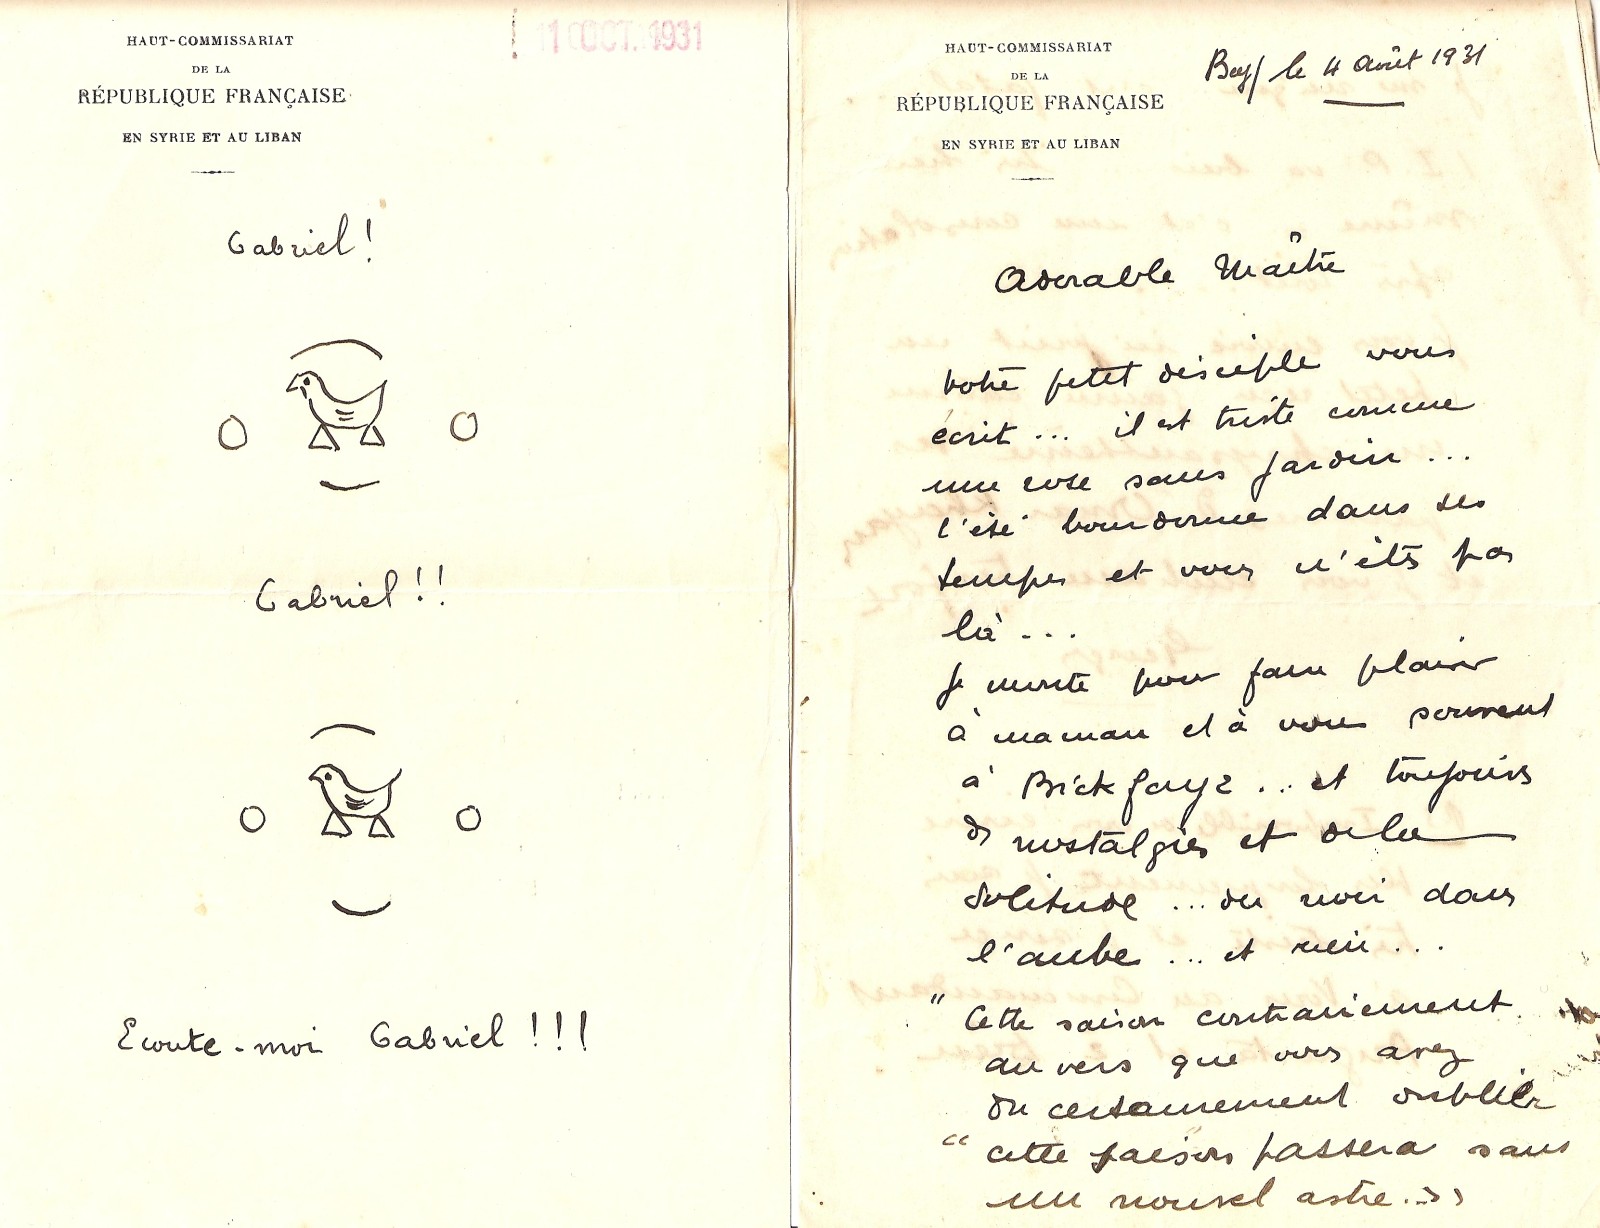 HAUT-COMMISSARIAT
DE LA
RÉPUBLIQUE FRANÇAISE
EN SYRIE ET AU LIBAN
11 OCT. 1931
Gabriel!
Gabriel!!
Ecoute-moi Gabriel!!!
HAUT-COMMISSARIAT
DE LA
RÉPUBLIQUE FRANÇAISE
EN SYRIE ET AU LIBAN
le 4 Août 1931
Adorable Maître
votre petit disciple vous
écrit... il est triste comme
une rose sans jardin...
l'été bourdonne dans ses
tempes et vous n'êtes pas
là...
Je monte pour faire plaisir
à maman et à vous souvent
à Bickfaya... et toujours
des nostalgies et de la
solitude... du noir dans
l'aube... et rien...
"Cette saison contrairement
au vers que vous avez
dû certainement oublier
"cette saison passera sans
un nouvel astre..»